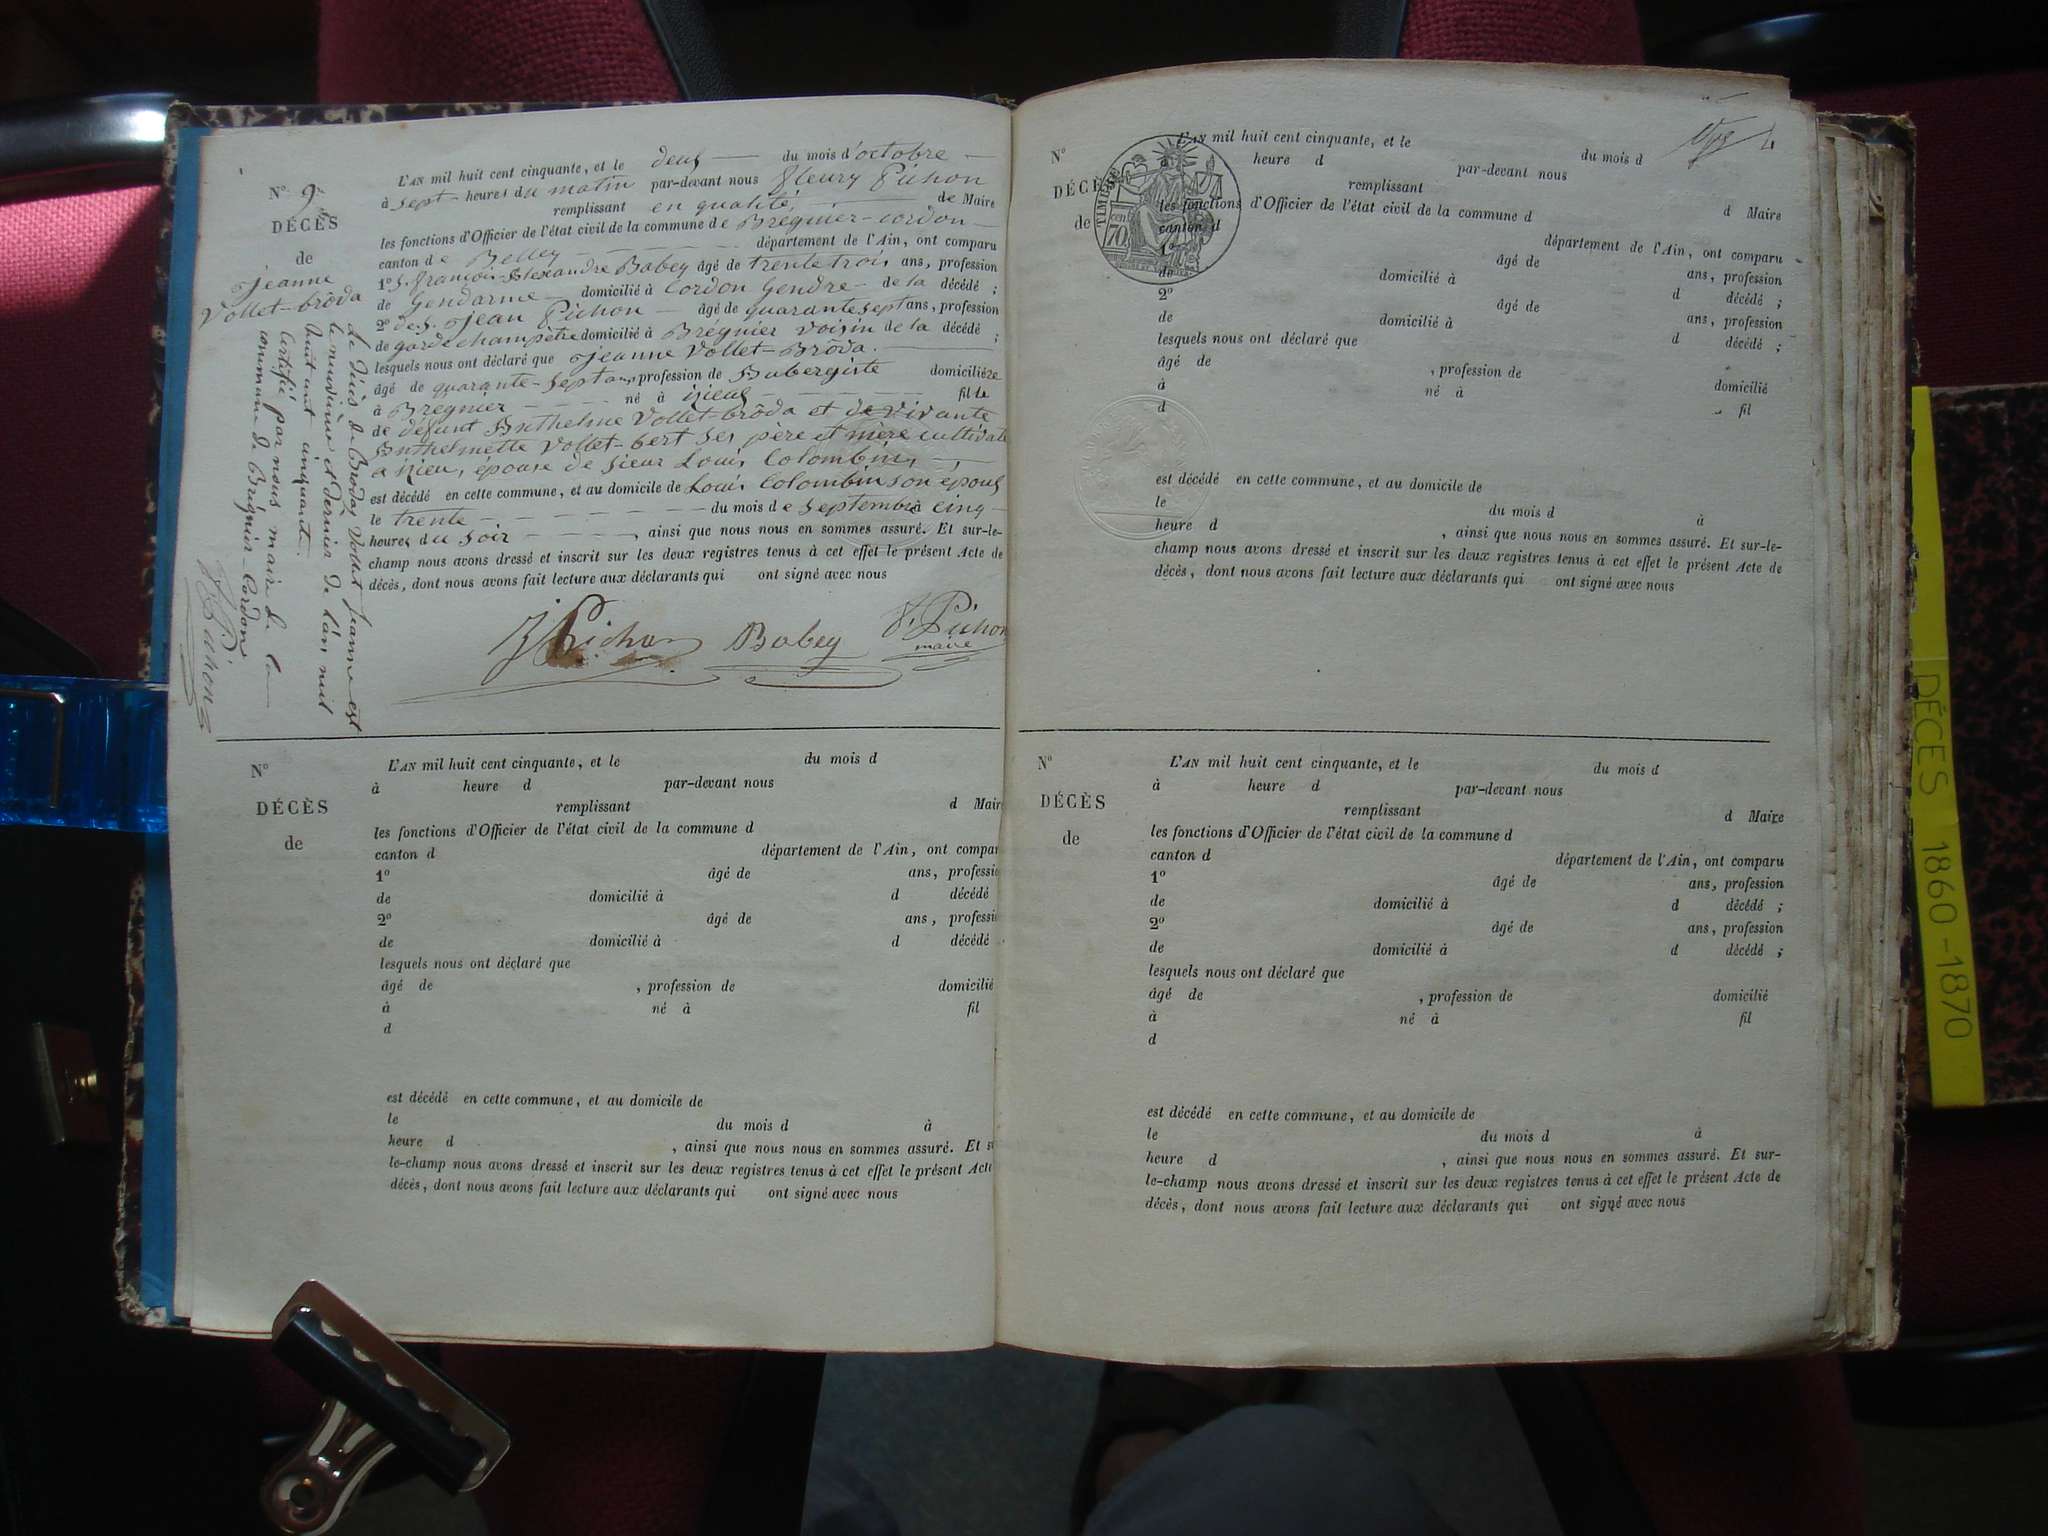 N° 9
DÉCÈS
de
Jeanne
Vollet-brôda
L'AN mil huit cent cinquante, et le deux du mois d'octobre
à sept heures du matin par-devant nous Fleury Pichon
remplissant en qualité de Maire
les fonctions d'Officier de l'état civil de la commune de Brégnier-cordon
canton de Belley département de l'Ain, ont comparu
1° S. françois-Alexandre Babey âgé de trente trois ans, profession
de Gendarme domicilié à Cordon Gendre de la décédé ;
2° de S. Jean Pichon âgé de quarante sept ans, profession
de garde champêtre domicilié à Brégnier voisin de la décédé ;
lesquels nous ont déclaré que Jeanne Vollet-Brôda.
âgé de quarante-sept ans, profession de Aubergiste domiciliée
à Bregnier né à izieux fille
de défunt Anthelme Vollet-brôda et de vivante
Anthelmette Vollet-bert ses père et mère cultivate
a izieu, épouse de sieur Louis Colombin,
est décédé en cette commune, et au domicile de Louis Colombin son époux
le trente du mois de septembre à cinq
heures du soir , ainsi que nous nous en sommes assuré. Et sur-le-
champ nous avons dressé et inscrit sur les deux registres tenus à cet effet le présent Acte de
décès, dont nous avons fait lecture aux déclarants qui ont signé avec nous
J Pichon Babey F. Pichon
maire
Le Décès de Brodas Vollet Jeanne est
le neuvième et dernier de l'an mil
huit cent cinquante.
Certifié par nous maire de la
commune de Brégnier-Cordon
F. Pichon
N°
DÉCÈS
de
L'AN mil huit cent cinquante, et le du mois d
à heure d par-devant nous
remplissant d Maire
les fonctions d'Officier de l'état civil de la commune d
canton d département de l'Ain, ont compar
1° âgé de ans, professio
de domicilié à d décédé
2° âgé de ans, professi
de domicilié à d décédé
lesquels nous ont déclaré que
âgé de , profession de domicilié
à né à fil
d
est décédé en cette commune, et au domicile de
le du mois d à
heure d , ainsi que nous nous en sommes assuré. Et s
le-champ nous avons dressé et inscrit sur les deux registres tenus à cet effet le présent Acte
décès, dont nous avons fait lecture aux déclarants qui ont signé avec nous
N°
DÉCÈS
de
TIMBRE
cen
70
L'AN mil huit cent cinquante, et le du mois d
heure d par-devant nous
remplissant d Maire
les fonctions d'Officier de l'état civil de la commune d
canton d département de l'Ain, ont comparu
1° âgé de ans, profession
de domicilié à d décédé ;
2° âgé de ans, profession
de domicilié à d décédé ;
lesquels nous ont déclaré que
âgé de , profession de domicilié
à né à fil
d
est décédé en cette commune, et au domicile de
le du mois d à
heure d , ainsi que nous nous en sommes assuré. Et sur-le-
champ nous avons dressé et inscrit sur les deux registres tenus à cet effet le présent Acte de
décès, dont nous avons fait lecture aux déclarants qui ont signé avec nous
N°
DÉCÈS
de
L'AN mil huit cent cinquante, et le du mois d
à heure d par-devant nous
remplissant d Maire
les fonctions d'Officier de l'état civil de la commune d
canton d département de l'Ain, ont comparu
1° âgé de ans, profession
de domicilié à d décédé ;
2° âgé de ans, profession
de domicilié à d décédé ;
lesquels nous ont déclaré que
âgé de , profession de domicilié
à né à fil
d
est décédé en cette commune, et au domicile de
le du mois d à
heure d , ainsi que nous nous en sommes assuré. Et sur-
le-champ nous avons dressé et inscrit sur les deux registres tenus à cet effet le présent Acte de
décès, dont nous avons fait lecture aux déclarants qui ont signé avec nous
DÉCES 1860-1870